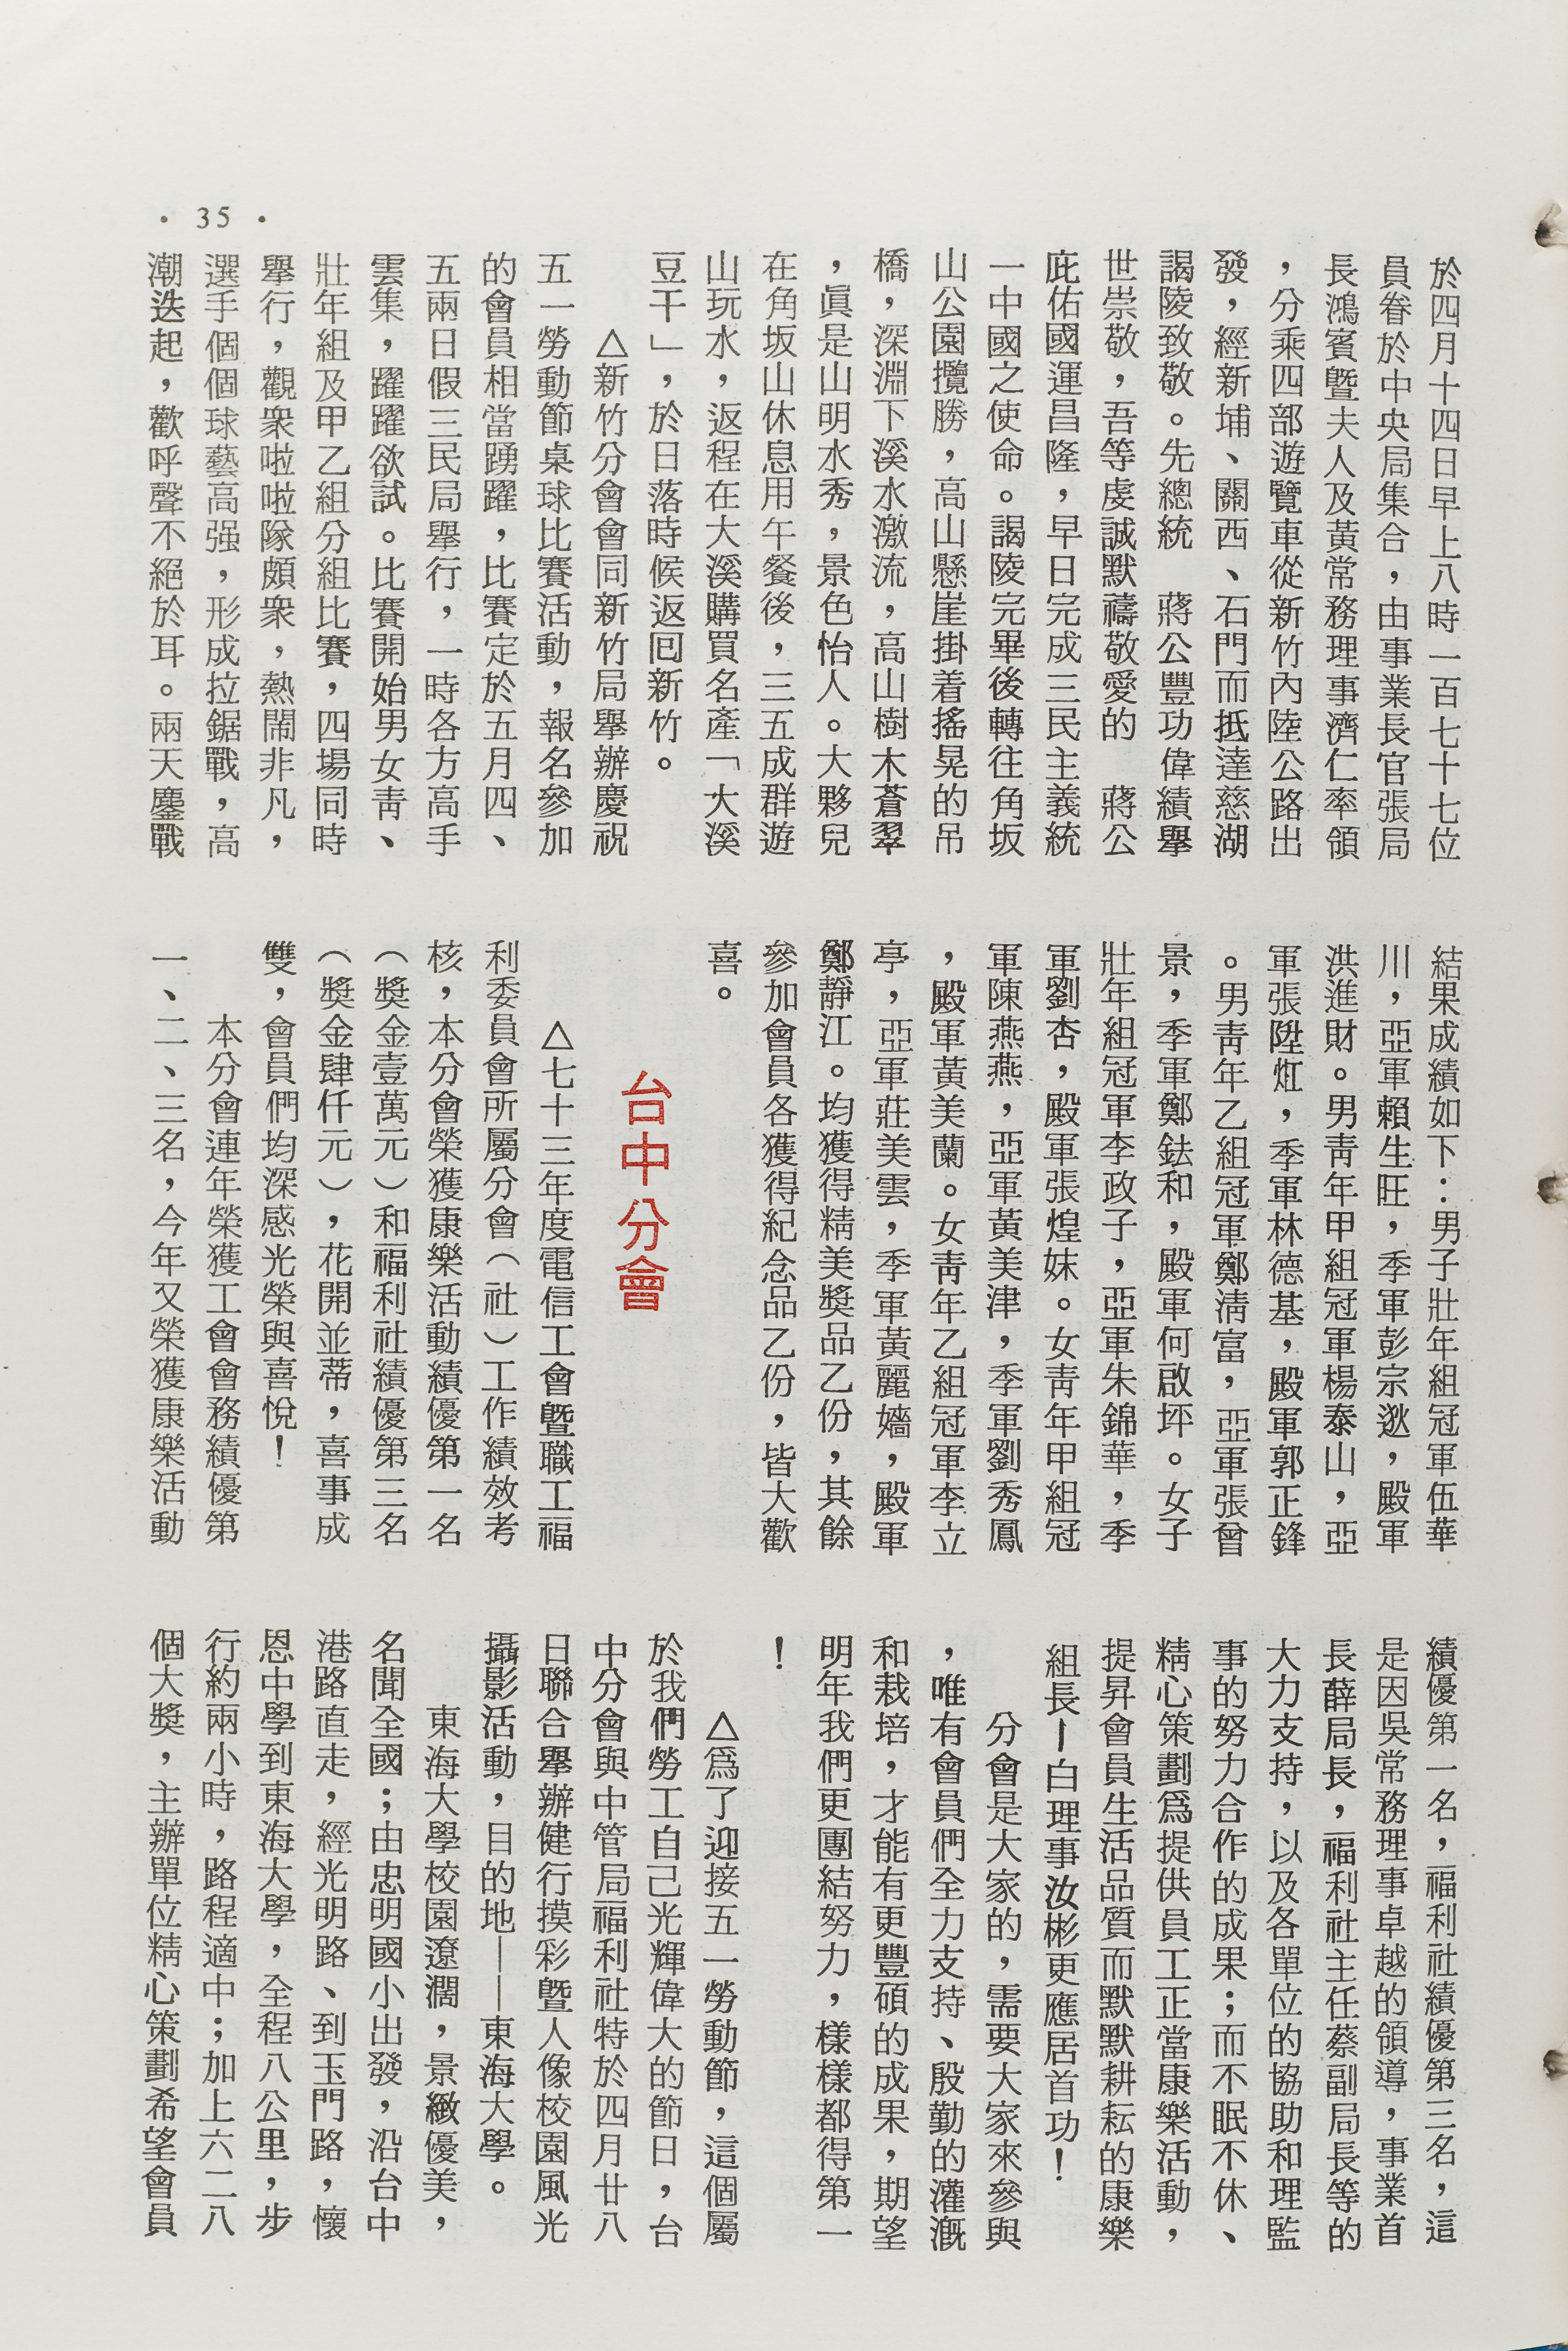 於四月十四日早上八時一百七十七位
員眷於中央局集合，由事業長官張局
長鴻賓曁夫人及黃常務理事濟仁率領
，分乘四部遊覽車從新竹內陸公路出
發，經新埔、關西、石門而抵達慈湖
謁陵致敬。先總統　蔣公豐功偉績舉
世崇敬，吾等虔誠默禱敬愛的　蔣公
庇佑國運昌隆，早日完成三民主義統
一中國之使命。謁陵完畢後轉往角坂
山公園攬勝，高山懸崖掛着搖晃的吊
橋，深淵下溪水激流，高山樹木蒼翠
，眞是山明水秀，景色怡人。大夥兒
在角坂山休息用午餐後，三五成群遊
山玩水，返程在大溪購買名產「大溪
豆干」，於日落時候返回新竹。
△新竹分會會同新竹局舉辦慶祝
五一勞動節桌球比賽活動，報名參加
的會員相當踴躍，比賽定於五月四、
五兩日假三民局舉行，一時各方高手
雲集，躍躍欲試。比賽開始男女靑、
壯年組及甲乙組分組比賽，四場同時
舉行，觀衆啦啦隊頗衆，熱鬧非凡，
選手個個球藝高强，形成拉鋸戰，高
潮迭起，歡呼聲不絕於耳。兩天鏖戰
結果成績如下：男子壯年組冠軍伍華
川，亞軍賴生旺，季軍彭宗逖，殿軍
洪進財。男靑年甲組冠軍楊泰山，亞
軍張陞炡，季軍林德基，殿軍郭正鋒
。男靑年乙組冠軍鄭淸富，亞軍張曾
景，季軍鄭鉣和，殿軍何啟坪。女子
壯年組冠軍李政子，亞軍朱錦華，季
軍劉杏，殿軍張煌妹。女靑年甲組冠
軍陳燕燕，亞軍黃美津，季軍劉秀鳳
，殿軍黃美蘭。女靑年乙組冠軍李立
亭，亞軍莊美雲，季軍黃麗嬙，殿軍
鄭靜江。均獲得精美獎品乙份，其餘
參加會員各獲得紀念品乙份，皆大歡
喜。
台中分會
△七十三年度電信工會曁職工福
利委員會所屬分會（社）工作績效考
核，本分會榮獲康樂活動績優第一名
（獎金壹萬元）和福利社績優第三名
（獎金肆仟元），花開並蒂，喜事成
雙，會員們均深感光榮與喜悅！
本分會連年榮獲工會會務績優第
一、二、三名，今年又榮獲康樂活動
績優第一名，福利社績優第三名，這
是因吳常務理事卓越的領導，事業首
長薛局長，福利社主任蔡副局長等的
大力支持，以及各單位的協助和理監
事的努力合作的成果；而不眠不休、
精心策劃爲提供員工正當康樂活動，
提昇會員生活品質而默默耕耘的康樂
組長—白理事汝彬更應居首功！
分會是大家的，需要大家來參與
，唯有會員們全力支持、殷勤的灌漑
和栽培，才能有更豐碩的成果，期望
明年我們更團結努力，樣樣都得第一
！
△爲了迎接五一勞動節，這個屬
於我們勞工自己光輝偉大的節日，台
中分會與中管局福利社特於四月廿八
日聯合舉辦健行摸彩曁人像校園風光
攝影活動，目的地——東海大學。
東海大學校園遼濶，景緻優美，
名聞全國；由忠明國小出發，沿台中
港路直走，經光明路、到玉門路，懷
恩中學到東海大學，全程八公里，步
行約兩小時，路程適中；加上六二八
個大獎，主辦單位精心策劃希望會員
· 35 ·